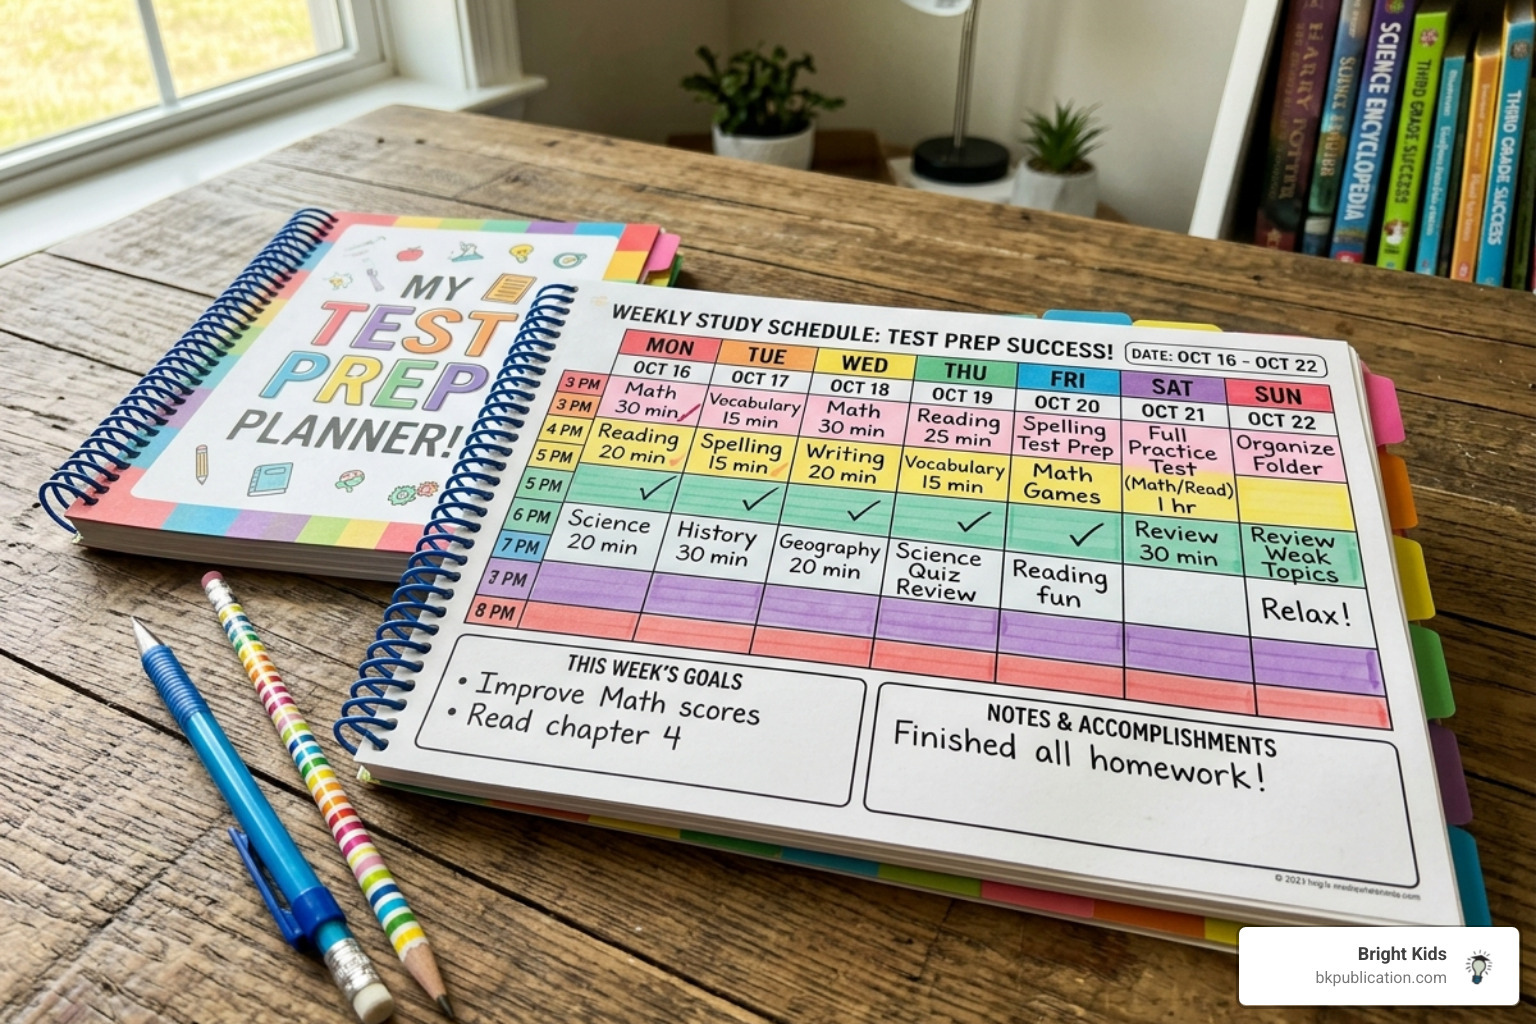 MY
TEST
PREP
PLANNER!
WEEKLY STUDY SCHEDULE: TEST PREP SUCCESS!
DATE: OCT 16 - OCT 22
MON TUE WED THU FRI SAT SUN
OCT 16 OCT 17 OCT 18 OCT 19 OCT 20 OCT 21 OCT 22
3 PM
3 PM
4 PM
5 PM
5 PM
6 PM
7 PM
3 PM
8 PM
Math
30 min
Vocabulary
15 min
Math
30 min
Reading
25 min
Spelling
Test Prep
Full
Practice
Test
(Math/Read)
1 hr
Organize
Folder
Reading
20 min
Spelling
15 min
Writing
20 min
Vocabulary
15 min
Math
Games
✓ ✓ ✓ ✓ ✓
Review
30 min
Review
Weak
Topics
Science
20 min
History
30 min
Geography
20 min
Science
Quiz
Review
Reading
fun
Relax!
THIS WEEK'S GOALS
• Improve Math scores
• Read chapter 4
NOTES & ACCOMPLISHMENTS
Finished all homework!
HARRY POTTER
SCIENCE ENCYCLOPEDIA
THIRD GRADE SUCCESS
THIRD GRADE SUCCESS
Bright Kids
bkpublication.com